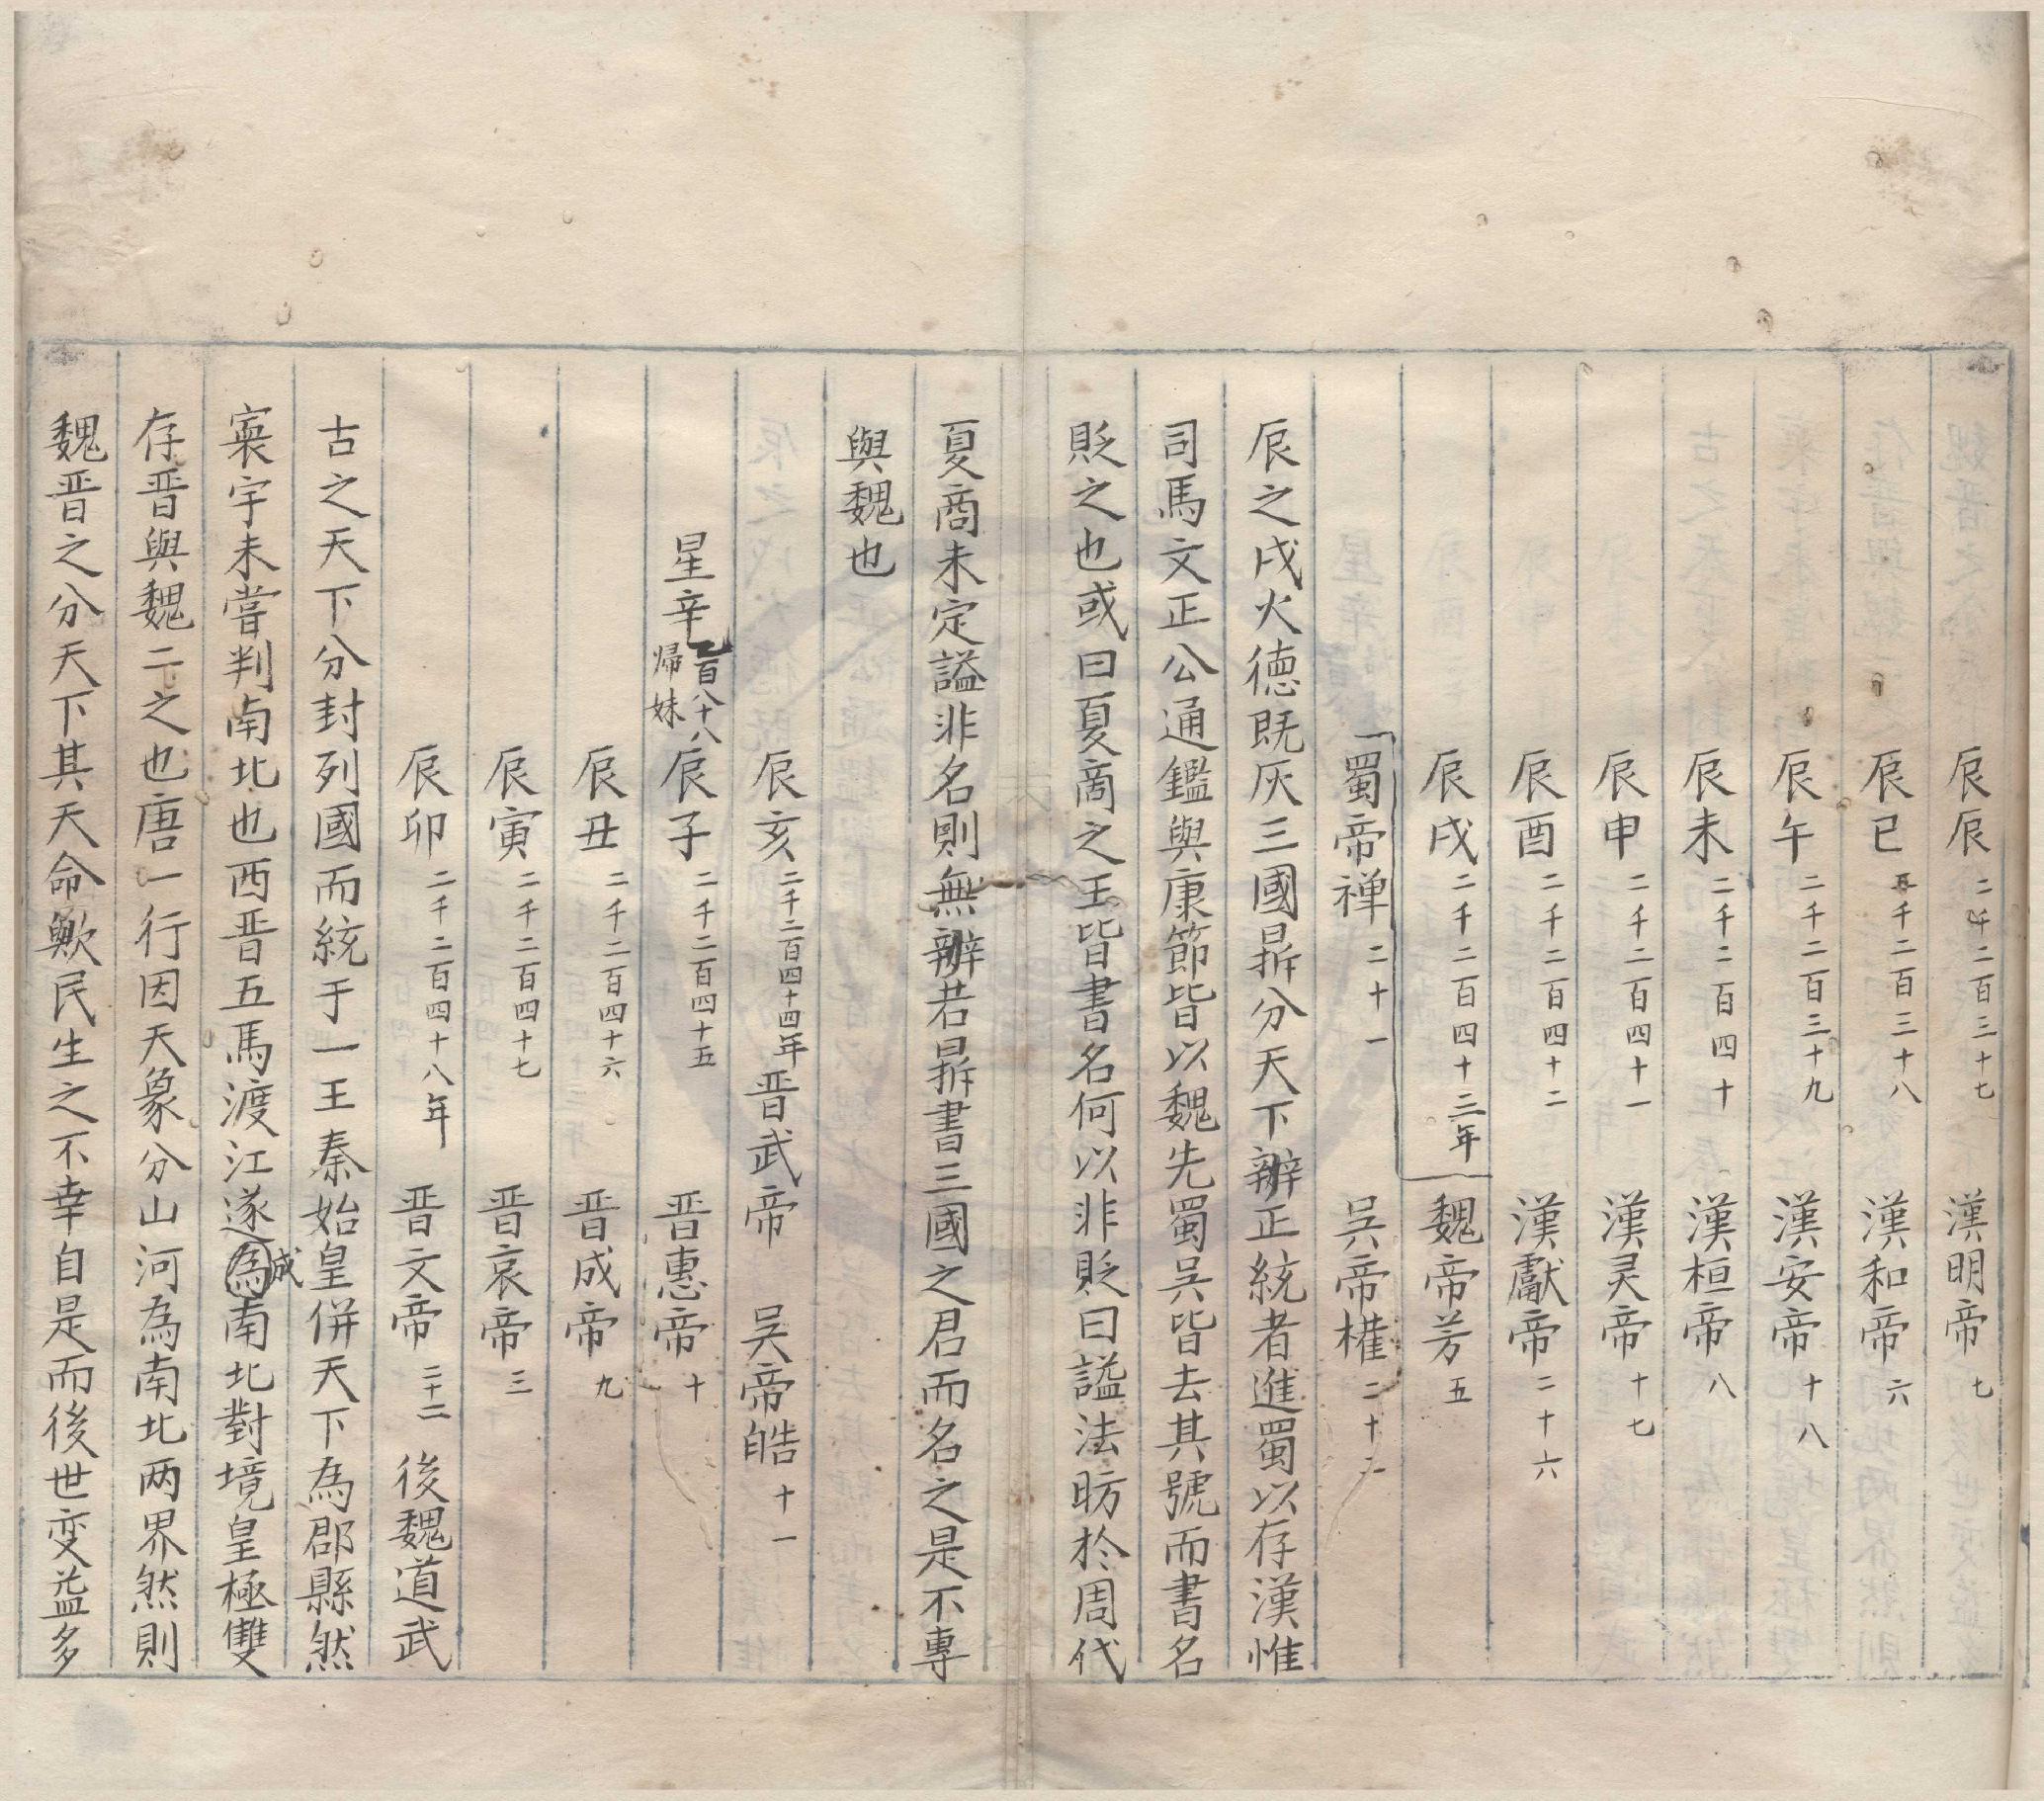 辰辰二千二百三十七　漢明帝七
辰巳二千二百三十八　漢和帝六
辰午二千二百三十九　漢安帝十八
辰未二千二百四十　漢桓帝八
辰申二千二百四十一　漢灵帝十七
辰酉二千二百四十二　漢獻帝二十六
辰戌二千二百四十三年　魏帝芳五
蜀帝禅二十一　吳帝權二十二
辰之戌火德既灰三國鼎分天下辦正統者進蜀以存漢惟
司馬文正公通鑑與康節皆以魏先蜀吳皆去其號而書名
貶之也或曰夏商之王皆書名何以非貶曰謚法昉於周代
夏商未定謚非名則無辦若鼎書三國之君而名之是不專
與魏也
辰亥二千二百四十四年晋武帝　吴帝皓十一
星辛乙百八十八歸妹　辰子二千二百四十五　晋惠帝十
辰丑二千二百四十六　晋成帝九
辰寅二千二百四十七　晋哀帝三
辰卯二千二百四十八年　晋文帝二十二　後魏道武
古之天下分封列國而統于一王秦始皇併天下為郡縣然
寰宇未嘗判南北也西晋五馬渡江遂為成南北對境皇極雙
存晋與魏二之也唐一行因天象分山河為南北两界然則
魏晋之分天下其天命歟民生之不幸自是而後世变益多